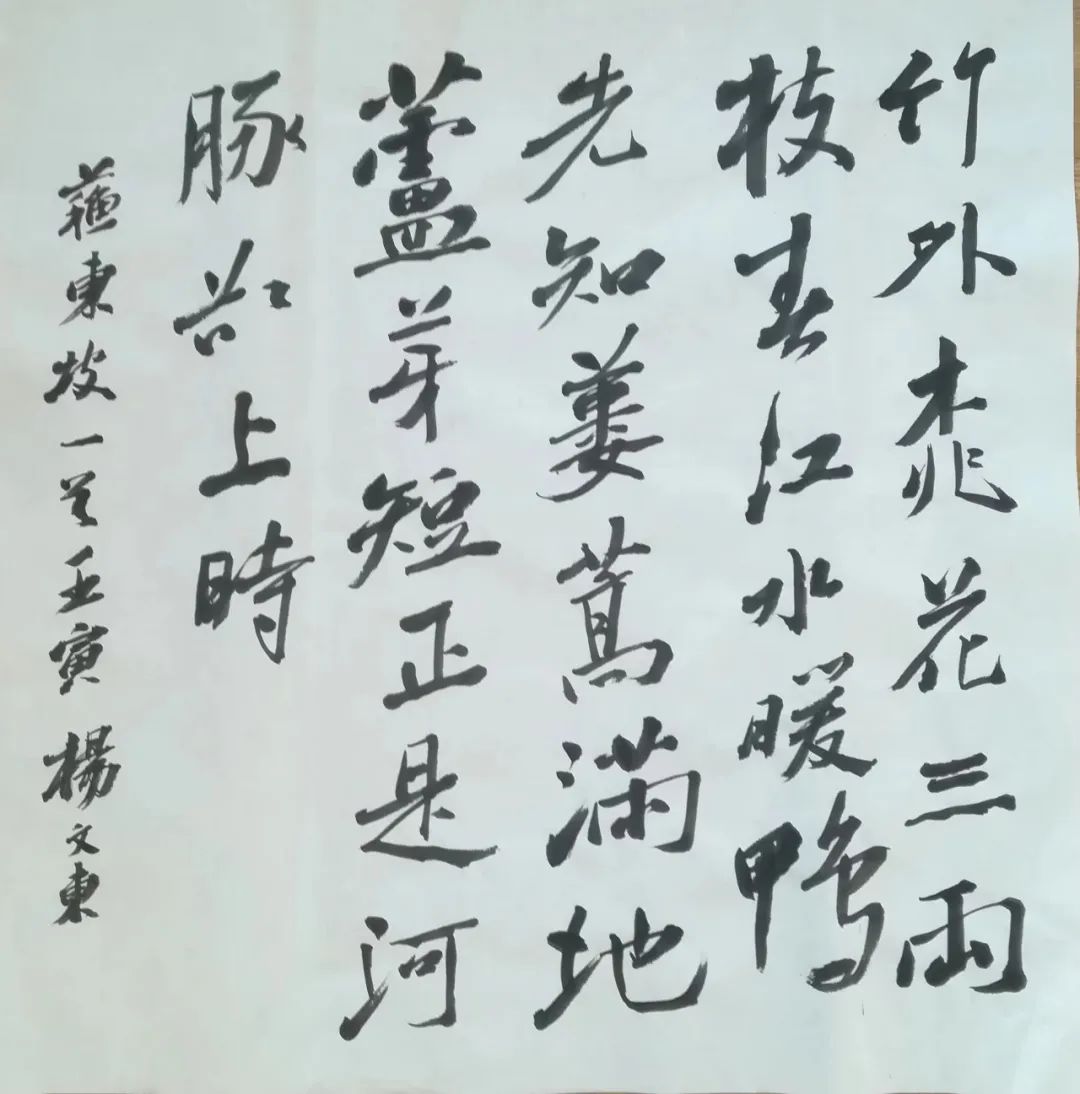 竹外桃花三兩
枝春江水暖鴨
先知蔞蒿滿地
蘆芽短正是河
豚欲上時
蘓東坡一首壬寅楊文東